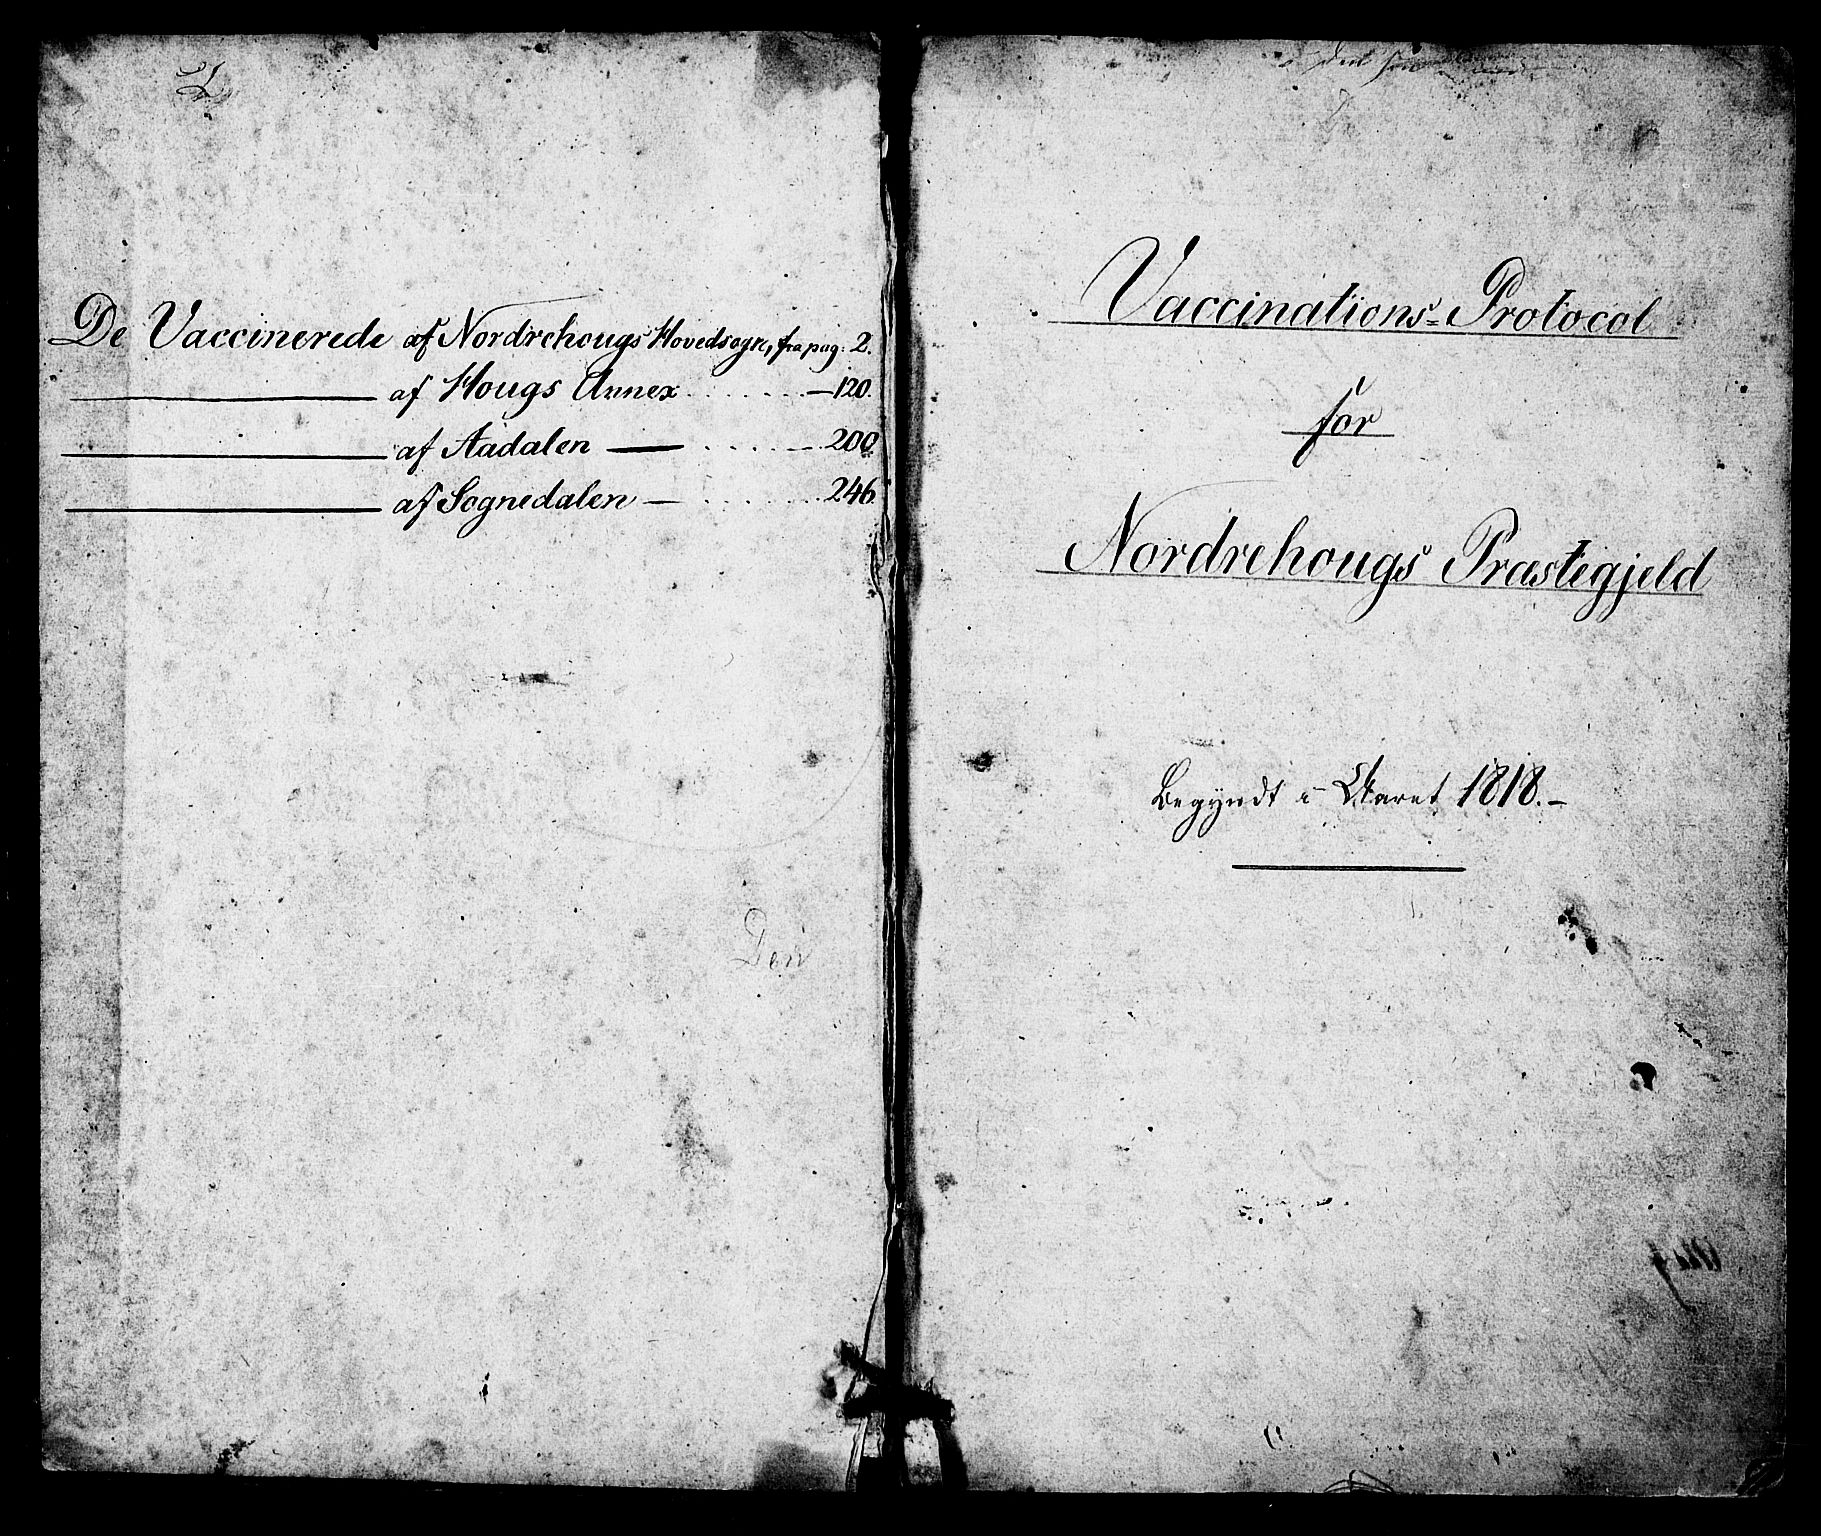 De Vaccinerede af Nordrehougs Hovedsogn, fra pag: 2.
——— af Hougs Annex . . . . . . . — 120.
——— af Aadalen — . . . . . — 200
——— af Sognedalen — . . . . . . . . 246.
Den
Vaccinations=Protocol
for
Nordrehougs Præstegjeld
Begyndt i Aaret 1818. –